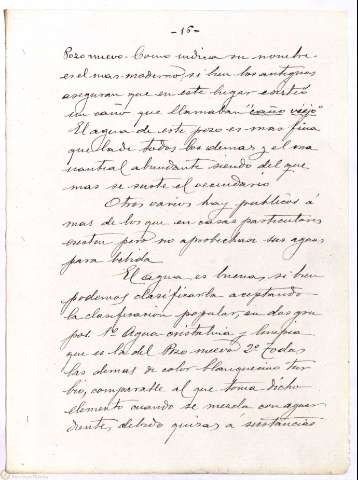 -16-
Pozo nuevo. Como indica su nombre
es el mas moderno, si bien los antiguos
aseguran que en este lugar existió
un caño que llamaban "caño viejo"
El agua de este pozo es mas fina
que la de todos los demas y el ma
nantial abundante siendo del que
mas se surte el vecindario
Otros varios hay publicos á
mas de los que en casas particulares
existen pero no aprovechan sus aguas
para bebida
El agua es buena, si bien
podemos clasificarla aceptando
la clasificación popular, en dos gru
pos. 1º Agua cristalina y limpia
que es la del Pozo nuevo 2º Todas
las demas de color blanquecino tur
bio, comparable al que toma dicho
elemento cuando se mezcla con aguar
diente, debido quizas a sustancias